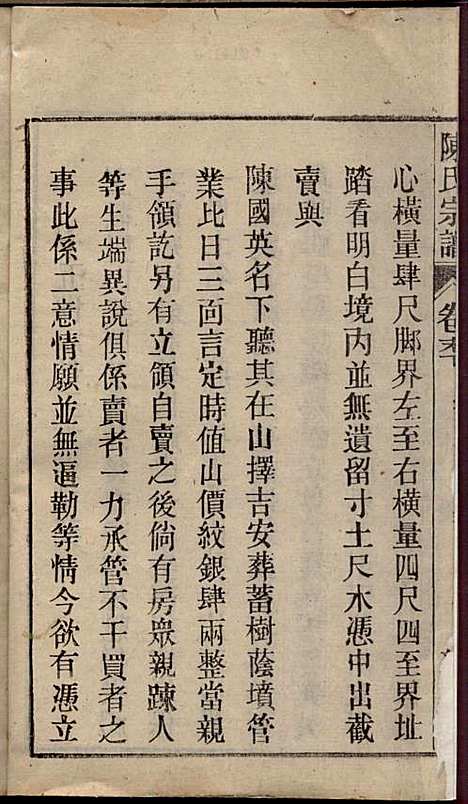 陳氏宗譜 卷
心橫量肆尺腳界左至右橫量四尺四至界址
踏看明白境內並無遺留寸土尺木憑中出截
賣與
陳國英名下聽其在山擇吉安葬蓄樹蔭墳管
業比日三面言定時值山價紋銀肆兩整當親
手領訖另有立領自賣之後倘有房眾親踈人
等生端異說俱係賣者一力承管不干買者之
事此係二意情願並無逼勒等情今欲有憑立